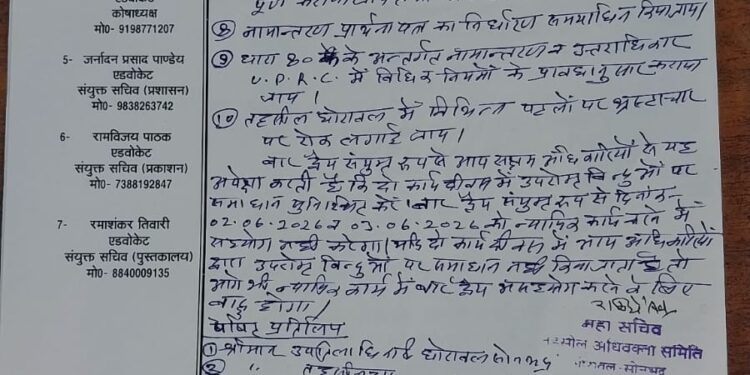 एडवोकेट
कोषाध्यक्ष
मो0- 9198771207
5- जर्नादन प्रसाद पाण्डेय
एडवोकेट
संयुक्त सचिव (प्रशासन)
मो0- 9838263742
6- रामविजय पाठक
एडवोकेट
संयुक्त सचिव (प्रकाशन)
मो0- 7388192847
7- रमाशंकर तिवारी
एडवोकेट
संयुक्त सचिव (पुस्तकालय)
मो0- 8840009135
⑧ नामान्तरण प्रार्थना पत्र का निर्धारण समयाधीन किया जाय।
⑨ धारा 80 के अन्तर्गत नामान्तरण व उत्तराधिकार
U.P.R.C. में विधिक नियमों के प्रावधानुसार कराया
जाय।
⑩ तहसील घोरावल में विभिन्न पटलों पर भ्रष्टाचार
पर रोक लगाई जाय।
बार संयुक्त रूप से आप सक्षम अधिकारियों से यह
अपेक्षा करती है कि दो कार्य दिवस में उपरोक्त बिन्दुओं पर
समाधान सुनिश्चित करें। बार संयुक्त रूप से दिनांक
02.06.2026 व 03.06.2026 को न्यायिक कार्य करने में
सहयोग नही करेगा। यदि दो कार्य दिवस में आप अधिकारियों
द्वारा उपरोक्त बिन्दुओं पर समाधान नही किया जाता है तो
आगे भी न्यायिक कार्य में बार असहयोग करने के लिए
बाध्य होगा।
प्रतिलिपि
① श्रीमान उपजिलाधिकारी घोरावल सोनभद्र
②
महा सचिव
तहसील अधिवक्ता समिति